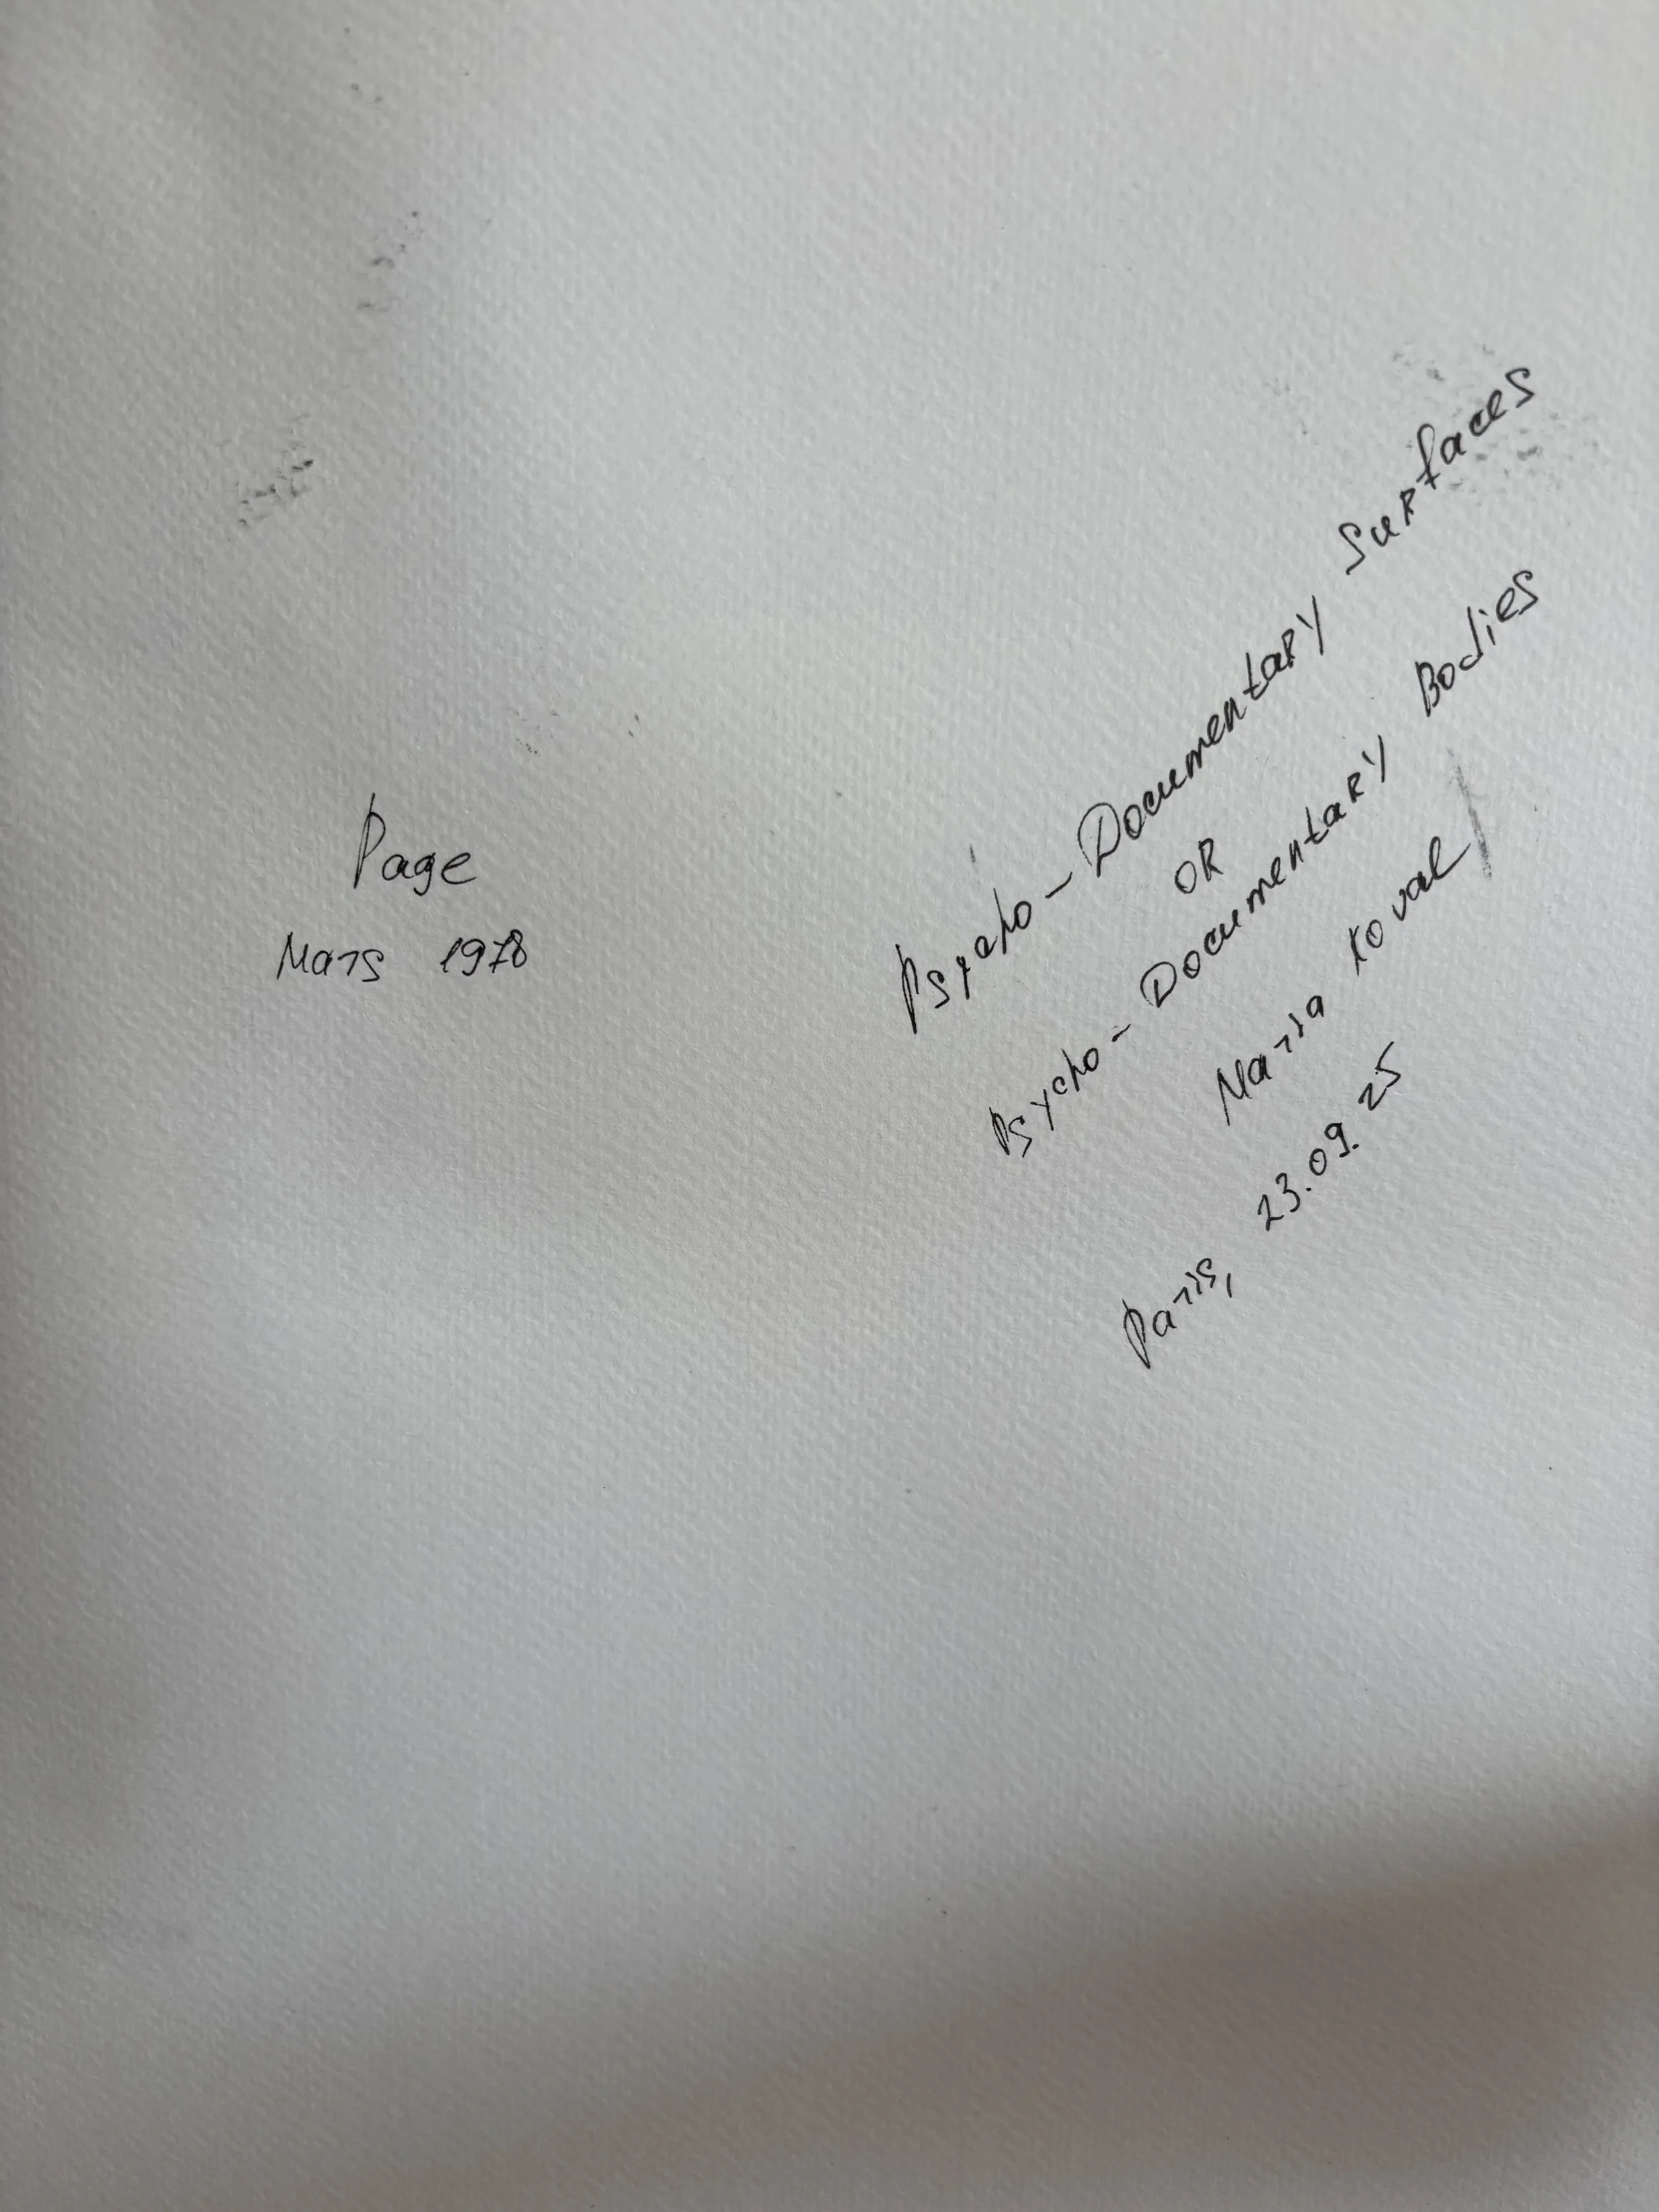 Page
Mars 1978
Psycho-Documentary Surfaces
OR
Psycho-Documentary Bodies
Maria Koval
Paris, 23.09.25